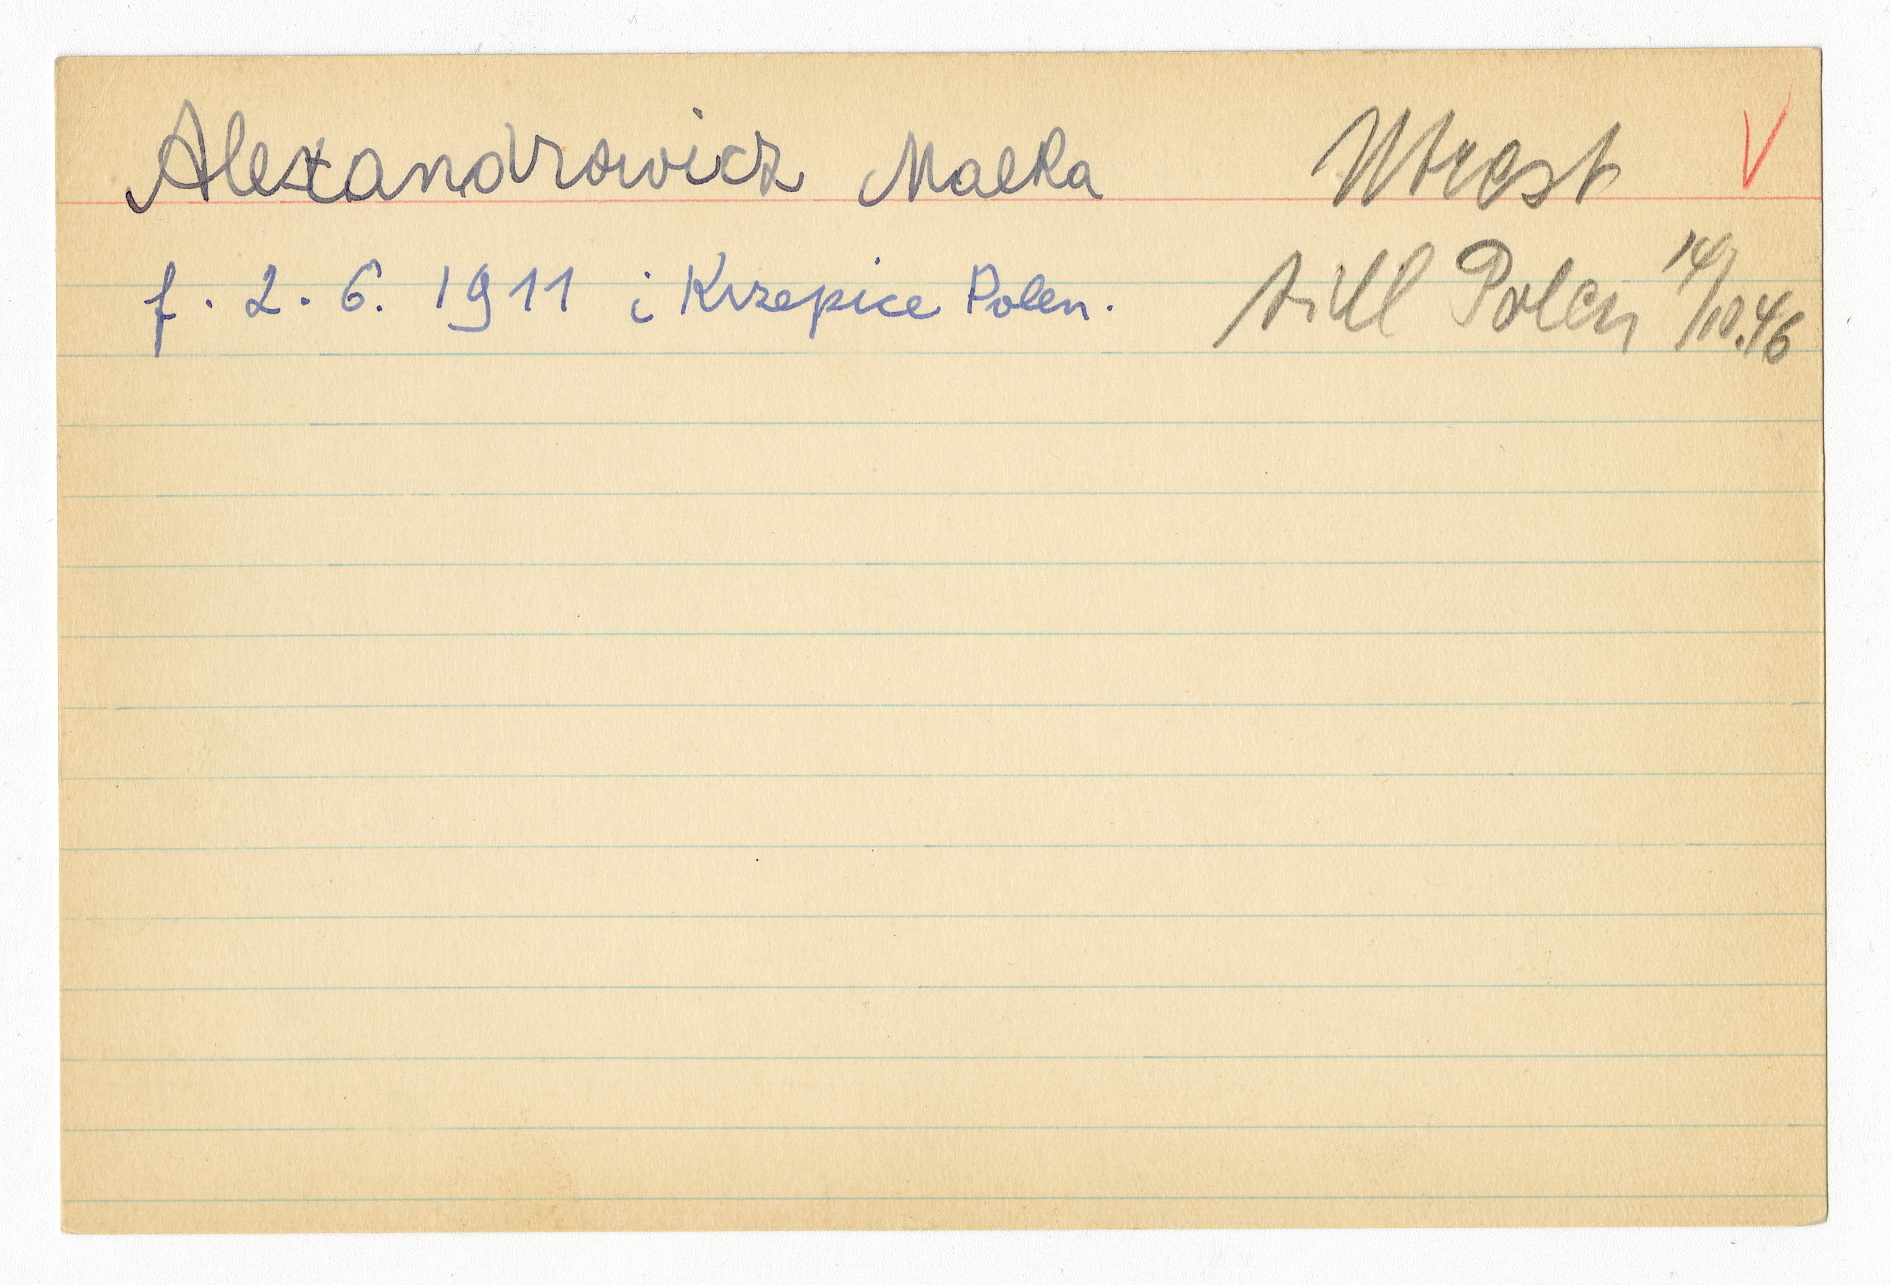 Alexandrowicz Malka Utrest
f. 2. 6. 1911 i Krzepice Polen. till Polen 14/10.46